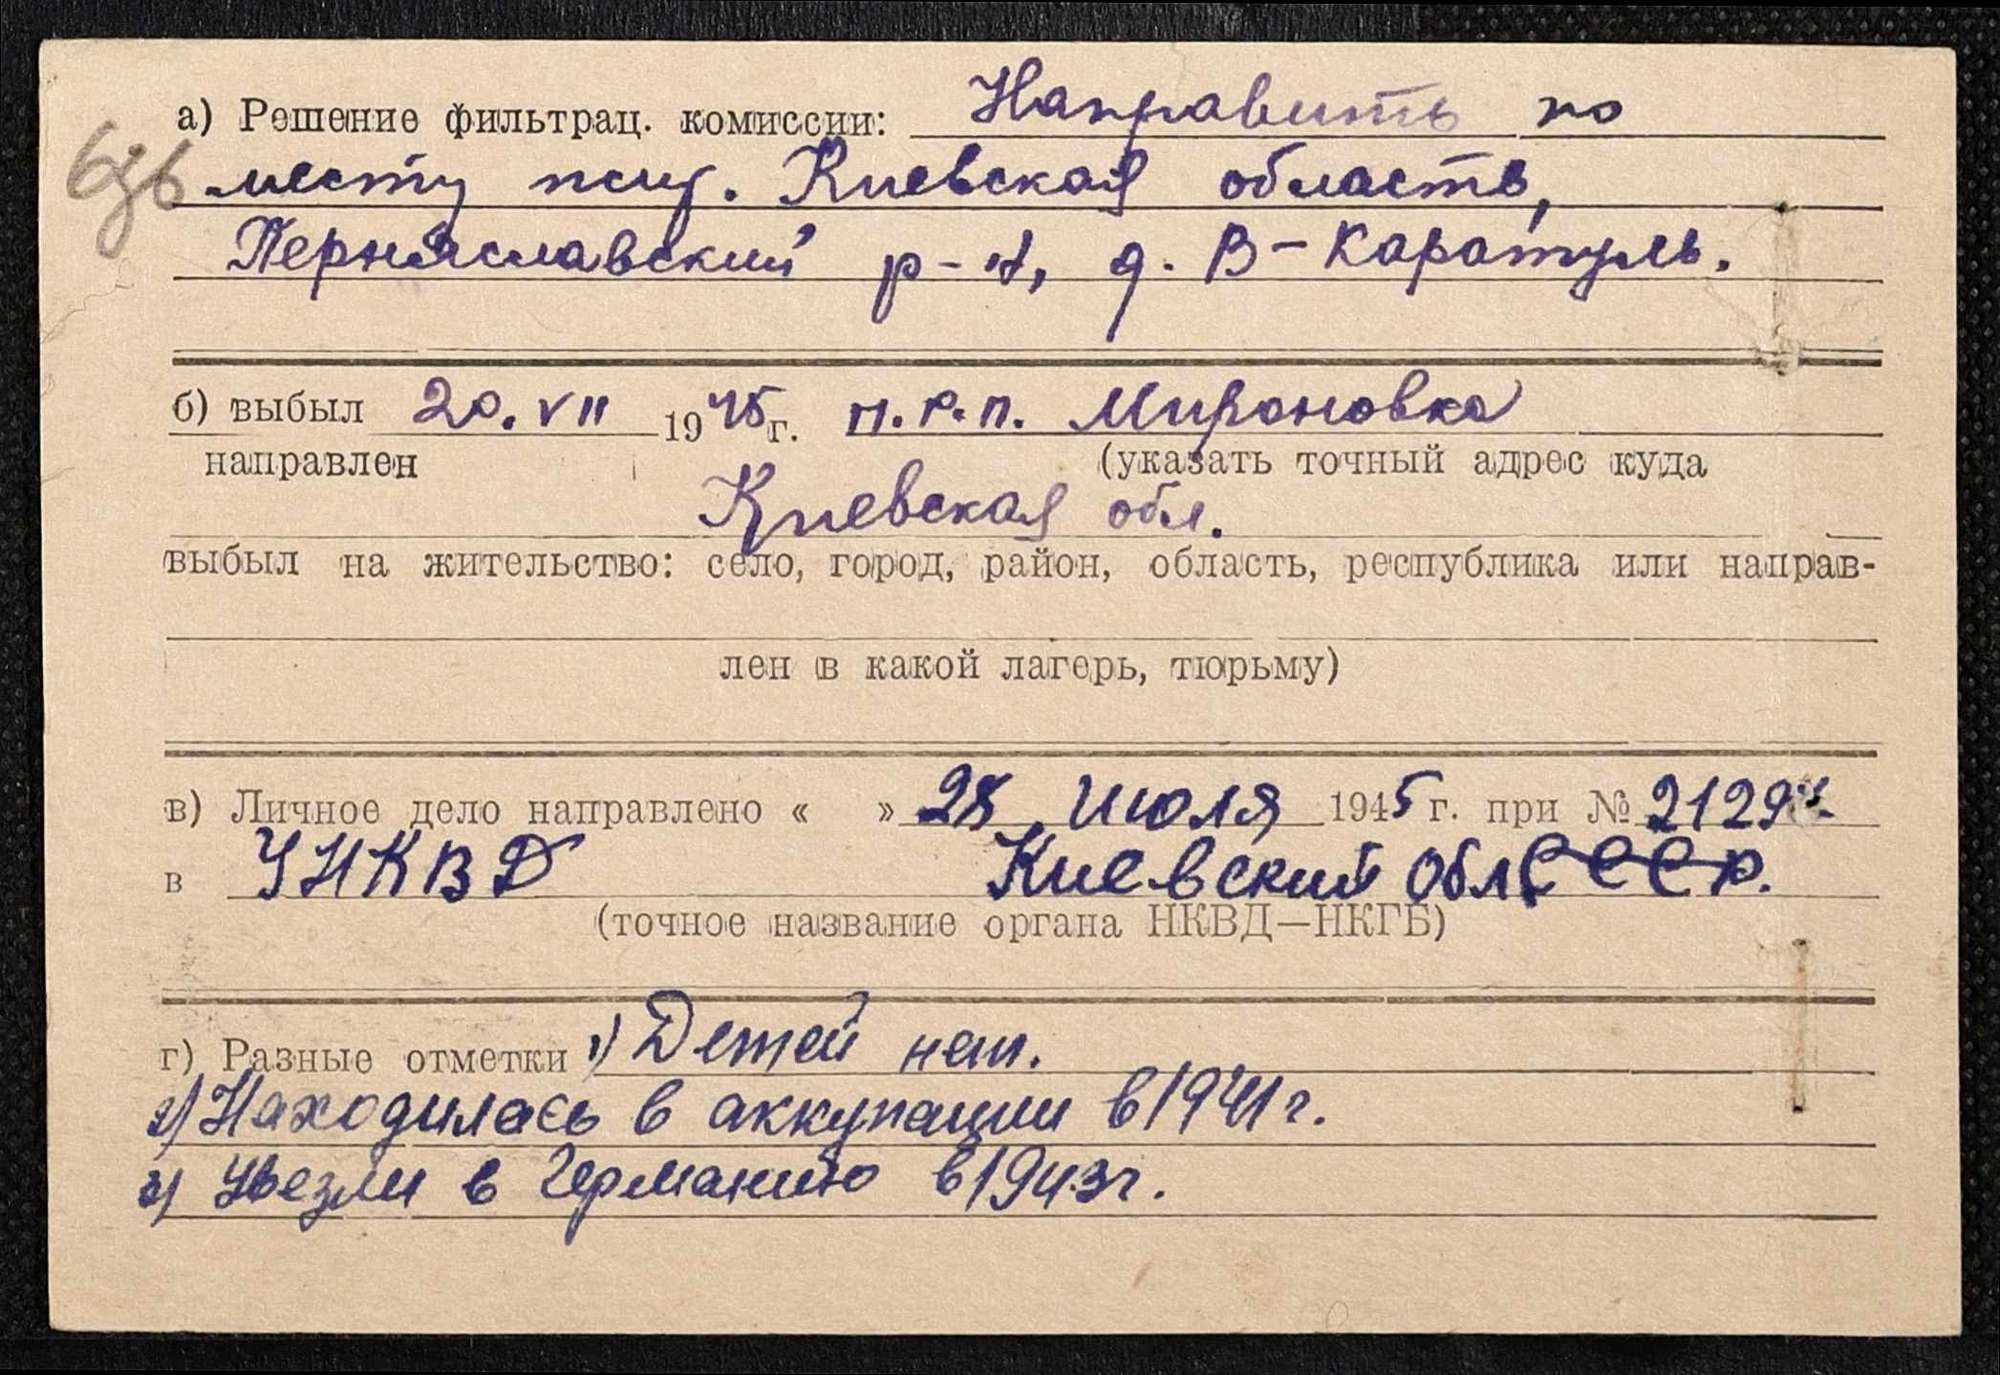 а) Решение фильтрац. комиссии: Направить по
месту жит. Киевская область,
Переяславский р-н, д. В-Каратуль.
б) выбыл 20.VII 1945г. п.р.п. Мироновка
направлен (указать точный адрес куда
Киевская обл.
выбыл на жительство: село, город, район, область, республика или направ-
лен в какой лагерь, тюрьму)
в) Личное дело направлено « » 28 Июля 1945 г. при № 2129
в УНКВД Киевский Обл
(точное название органа НКВД—НКГБ)
г) Разные отметки 1) Детей нет.
2) Находилась в аккупации в 1941 г.
3) Увезли в Германию в 1943 г.